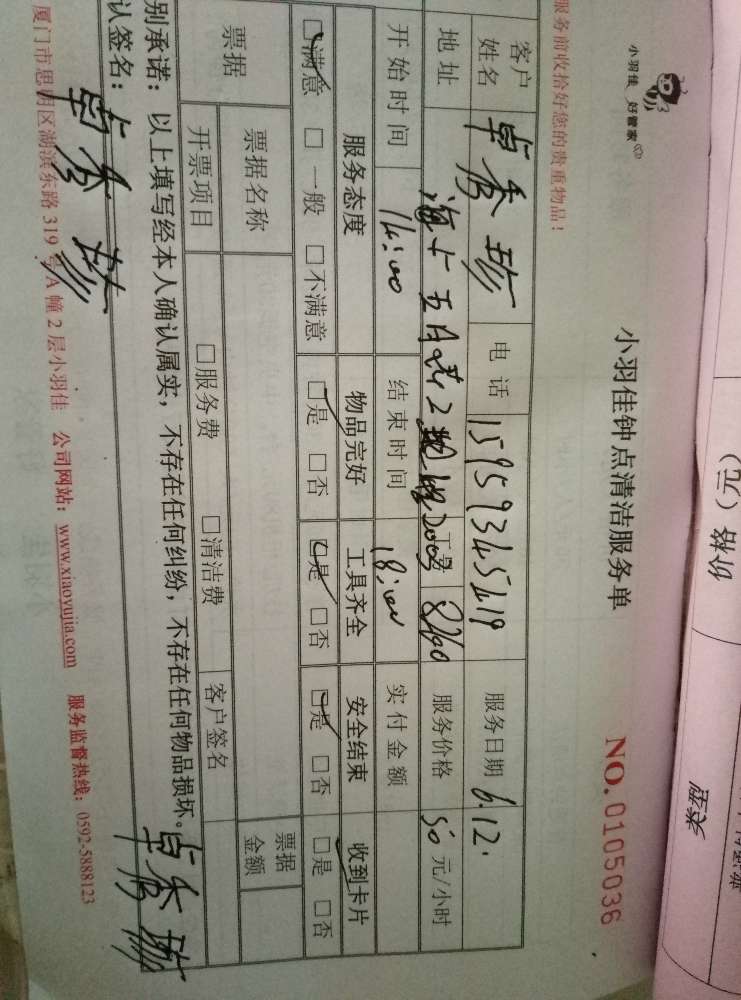 小羽佳 好管家
小羽佳钟点清洁服务单
NO. 0105036
服务前收拾好您的贵重物品！
客户姓名 卓秀珍 电话 15959345419 服务日期 6.12.
地址 工号 服务价格 50 元/小时
开始时间 14:00 结束时间 18:00 实付金额
服务态度 物品完好 工具齐全 安全结束 收到卡片
□满意 □一般 □不满意 □是 □否 □是 □否 □是 □否 □是 □否
票据 票据名称 票据金额
开票项目 □服务费 □清洁费 客户签名
别承诺：以上填写经本人确认属实，不存在任何纠纷，不存在任何物品损坏。
认签名：卓秀珍 卓秀珍
厦门市思明区湖滨东路 319 号 A 幢 2 层小羽佳 公司网站：www.xiaoyujia.com 服务监督热线：0592-5888123
价格（元）